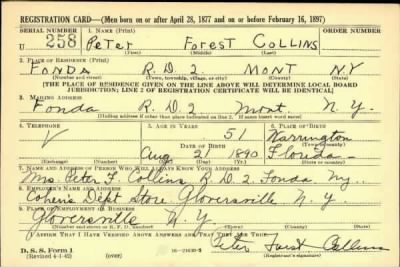 REGISTRATION CARD—(Men born on or after April 28, 1877 and on or before February 16, 1897)
SERIAL NUMBER 1. NAME (Print) ORDER NUMBER
U 258 Peter Forest Collins
(First) (Middle) (Last)
2. PLACE OF RESIDENCE (Print)
Fonda R.D.2 Mont NY
(Number and street) (Town, township, village, or city) (County) (State)
[THE PLACE OF RESIDENCE GIVEN ON THE LINE ABOVE WILL DETERMINE LOCAL BOARD
JURISDICTION; LINE 2 OF REGISTRATION CERTIFICATE WILL BE IDENTICAL]
3. MAILING ADDRESS
Fonda R.D.2 Mont. N.Y.
[Mailing address if other than place indicated on line 2. If same insert word same]
4. TELEPHONE 5. AGE IN YEARS 6. PLACE OF BIRTH
51 Warrington
DATE OF BIRTH (Town or county)
Aug 21 1890 Florida
(Mo.) (Day) (Yr.) (State or country)
7. NAME AND ADDRESS OF PERSON WHO WILL ALWAYS KNOW YOUR ADDRESS
Mrs. Peter F. Collins R.D.2 Fonda Ny.
8. EMPLOYER'S NAME AND ADDRESS
Cohens Dept Store Gloversville N.Y.
9. PLACE OF EMPLOYMENT OR BUSINESS
Gloversville N.Y.
(Number and street or R. F. D. number) (Town) (County) (State)
I AFFIRM THAT I HAVE VERIFIED ABOVE ANSWERS AND THAT THEY ARE TRUE.
D. S. S. Form 1 Peter Forest Collins
(Revised 4-1-42) (over) (Registrant's signature)